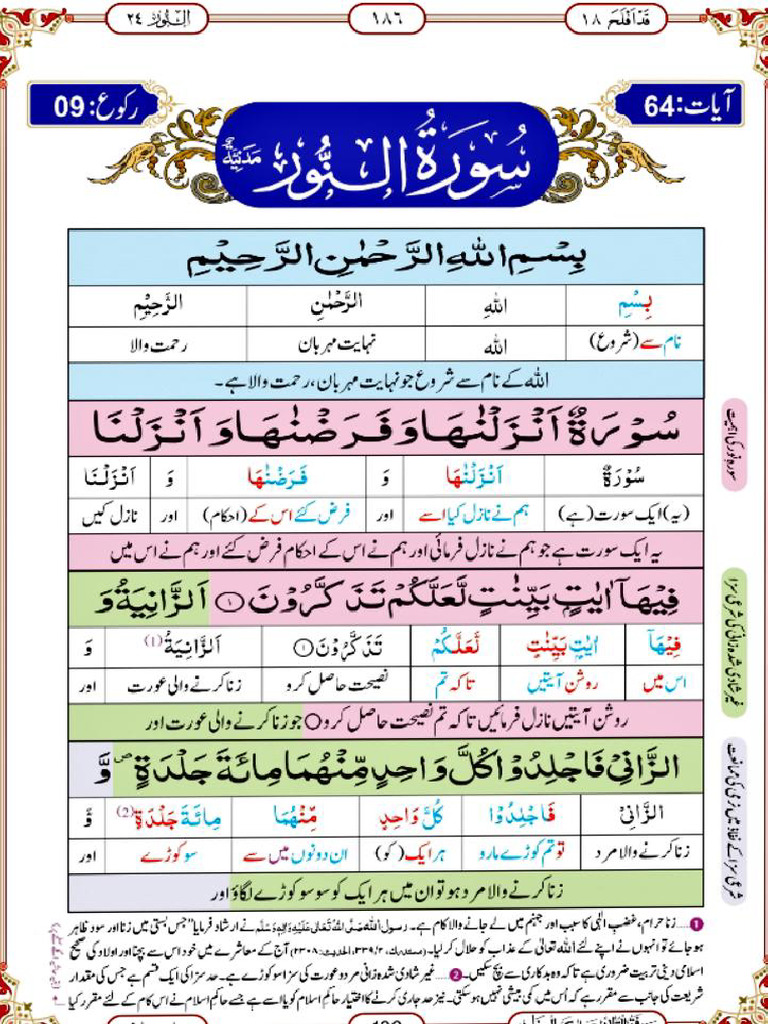 قَدْ اَفْلَحَ ١٨
١٨٦
النُّوْر ٢٤
آیات: 64
رکوع: 09
سُوْرَةُ النُّوْر مَدَنِيَّة
بِسْمِ اللّٰهِ الرَّحْمٰنِ الرَّحِيْمِ
بِسْمِ اللّٰهِ الرَّحْمٰنِ الرَّحِيْمِ
نام سے (شروع) اللّٰه نہایت مہربان رحمت والا
اللّٰه کے نام سے شروع جو نہایت مہربان، رحمت والا ہے۔
سُوْرَةٌ اَنْزَلْنٰهَا وَ فَرَضْنٰهَا وَ اَنْزَلْنَا
سورۂ نور کی اہمیت
سُوْرَةٌ اَنْزَلْنٰهَا وَ فَرَضْنٰهَا وَ اَنْزَلْنَا
(یہ) ایک سورت (ہے) ہم نے نازل کیا اسے اور فرض کئے اس کے (احکام) اور نازل کیں
یہ ایک سورت ہے جو ہم نے نازل فرمائی اور ہم نے اس کے احکام فرض کئے اور ہم نے اس میں
فِيْهَاۤ اٰيٰتٍۭ بَيِّنٰتٍ لَّعَلَّكُمْ تَذَكَّرُوْنَ ۝١ اَلزَّانِيَةُ وَ
غیر شادی شدہ زانی کی شرعی سزا
فِيْهَاۤ اٰيٰتٍۭ بَيِّنٰتٍ لَّعَلَّكُمْ تَذَكَّرُوْنَ ۝١ اَلزَّانِيَةُ (1) وَ
اس میں روشن آیتیں تاکہ تم نصیحت حاصل کرو زنا کرنے والی عورت اور
روشن آیتیں نازل فرمائیں تاکہ تم نصیحت حاصل کرو ۝ جو زنا کرنے والی عورت اور
الزَّانِيْ فَاجْلِدُوْا كُلَّ وَاحِدٍ مِّنْهُمَا مِائَةَ جَلْدَةٍ۪ وَّ
شرعی سزا کے نفاذ میں نرمی کی ممانعت
الزَّانِيْ فَاجْلِدُوْا كُلَّ وَاحِدٍ مِّنْهُمَا مِائَةَ جَلْدَةٍ (2) وَّ
زنا کرنے والا مرد تو تم کوڑے مارو ہر ایک (کو) ان دونوں میں سے سو کوڑے اور
زنا کرنے والا مرد ہو تو ان میں ہر ایک کو سو سو کوڑے لگاؤ اور
1 .... زنا حرام، غضبِ الٰہی کا سبب اور جہنم میں لے جانے والا کام ہے۔ رسول اللّٰه صَلَّی اللّٰهُ تَعَالٰی عَلَيْهِ وَاٰلِهٖ وَسَلَّم نے ارشاد فرمایا ”جس بستی میں زنا اور سود ظاہر
ہو جائے تو انہوں نے اپنے لئے اللّٰه تعالیٰ کے عذاب کو حلال کر لیا۔ (مستدرک، ٣٣٩/٢، الحدیث: ٢٣٠٨) آج کے معاشرے میں خود اس سے بچنا اور اولاد کی صحیح
اسلامی دینی تربیت ضروری ہے تاکہ وہ بدکاری سے بچ سکیں۔ 2 .... غیر شادی شدہ زانی مرد و عورت کی سزا سو کوڑے ہے۔ حد سزا کی ایک قسم ہے جس کی مقدار
شریعت کی جانب سے مقرر ہے کہ اُس میں کمی بیشی نہیں ہو سکتی۔ نیز حد جاری کرنے کا اختیار حاکمِ اسلام کو یا اسے ہے جسے حاکمِ اسلام نے اس کام کے لئے مقرر کیا